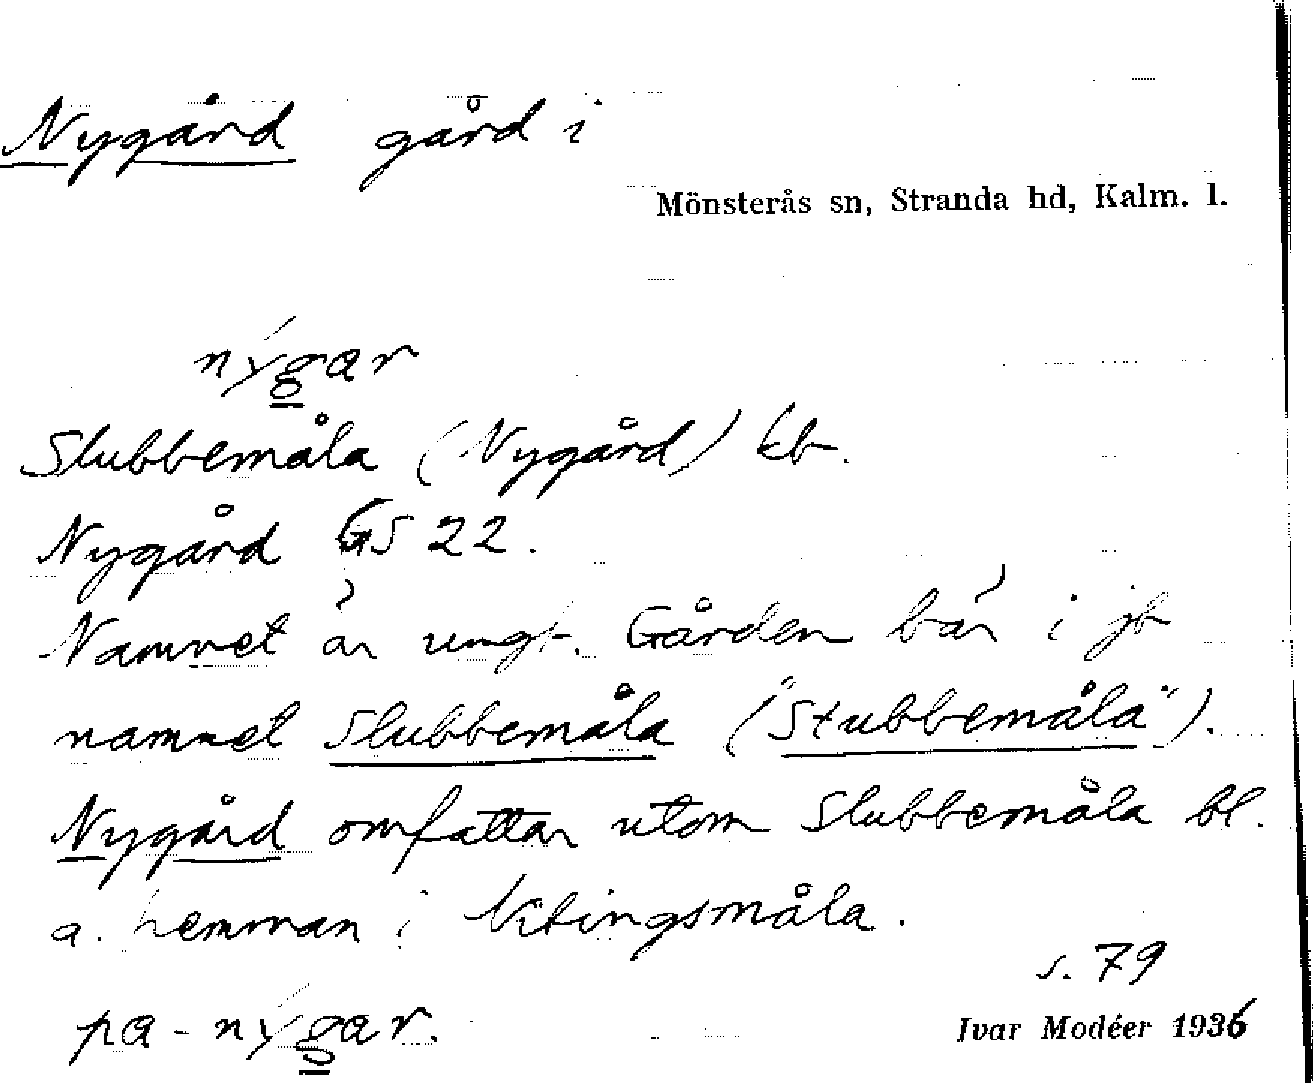 Nygård gård i
Mönsterås sn, Stranda hd, Kalm. l.
nýgar
Slubbemåla (Nygård) kb.
Nygård GS 22.
Namnet är ungt. Gården bär i jb
namnet Slubbemåla ("Stubbemåla").
Nygård omfattar utom Slubbemåla bl.
a. hemman i Nitingsmåla.
s. 79
pa - nýgar.
Ivar Modéer 1936